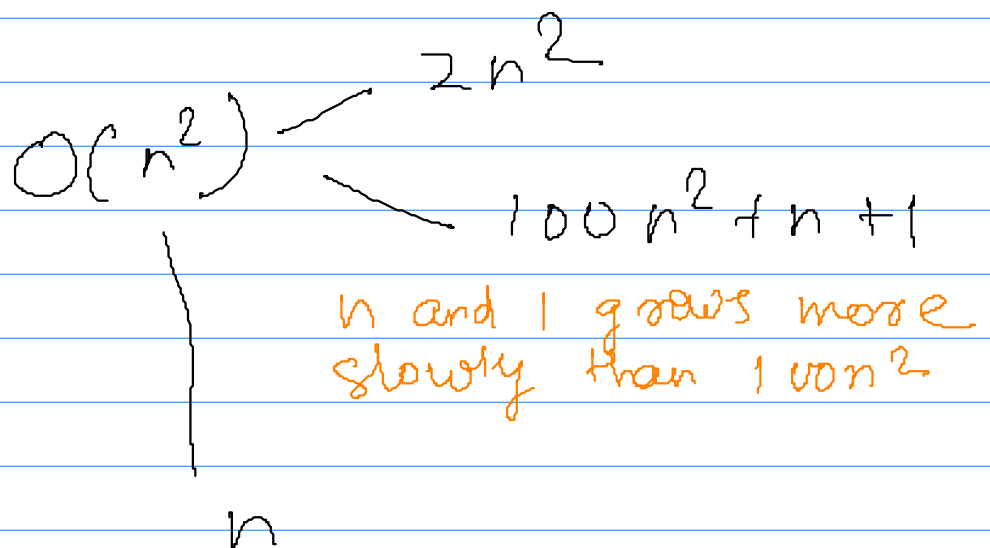 2n²
O(n²)
100n² + n + 1
n and 1 grows more
slowly than 100n²
n